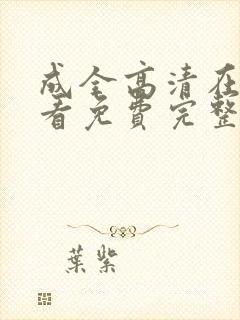 成全高清在
看免费完整
葉紫